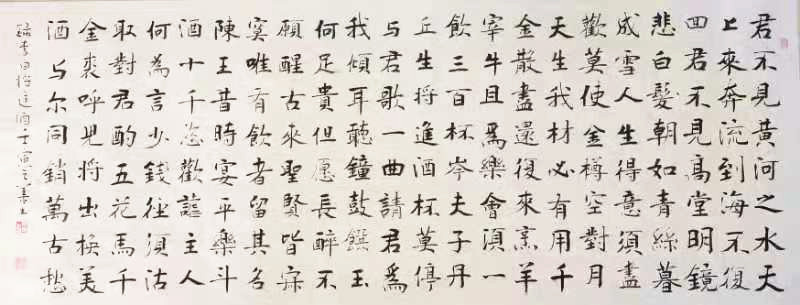 君不見黃河之水天
上來奔流到海不復
回君不見高堂明鏡
悲白髮朝如青絲暮
成雪人生得意須盡
歡莫使金樽空對月
天生我材必有用千
金散盡還復來烹羊
宰牛且爲樂會須一
飲三百杯岑夫子丹
丘生將進酒杯莫停
与君歌一曲請君爲
我傾耳聽鐘鼓饌玉
何足貴但愿長醉不
願醒古來聖賢皆寂
寞唯有飲者留其名
陳王昔時宴平樂斗
酒十千恣歡謔主人
何為言少錢徑須沽
取對君酌五花馬千
金裘呼兒將出換美
酒与尔同銷萬古愁
錄李白將進酒壬寅之